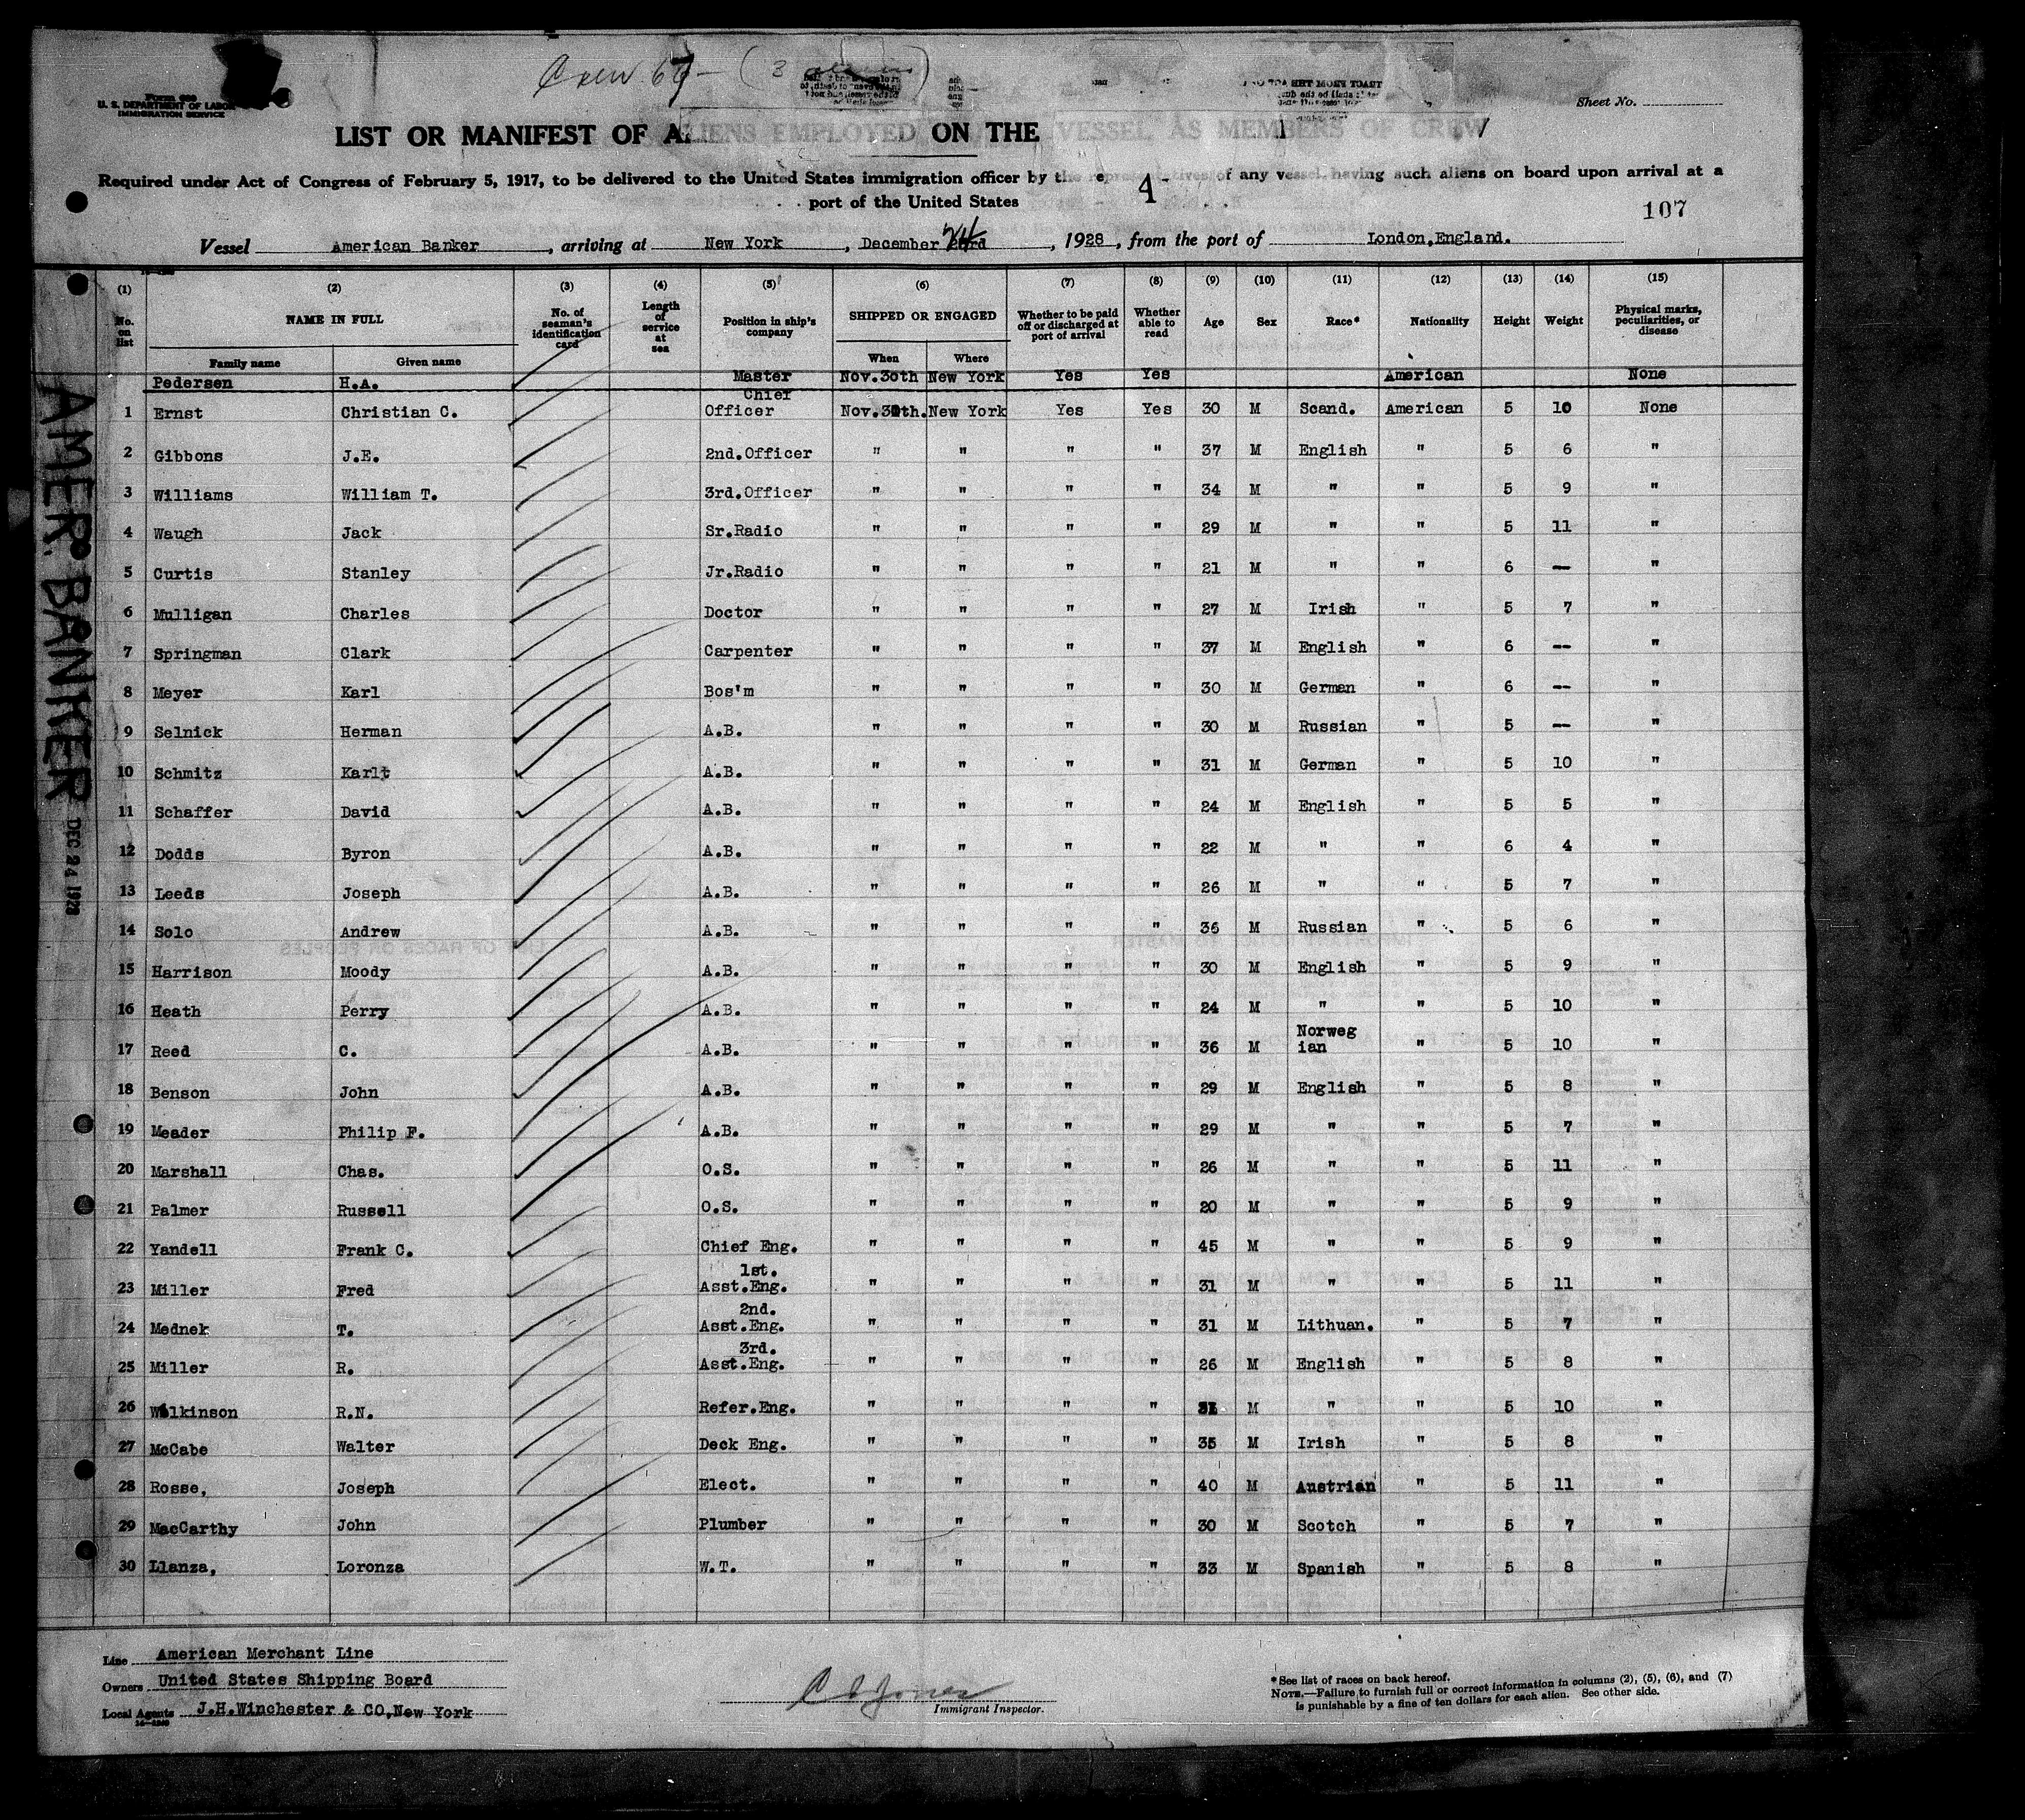 Crew 67 - (3 aliens)
U. S. DEPARTMENT OF LABOR
IMMIGRATION SERVICE
Sheet No.
LIST OR MANIFEST OF ALIENS EMPLOYED ON THE VESSEL AS MEMBERS OF CREW
Required under Act of Congress of February 5, 1917, to be delivered to the United States immigration officer by the representatives of any vessel having such aliens on board upon arrival at a
port of the United States
4
107
Vessel American Banker, arriving at New York, December 24, 1928, from the port of London,England.
(1) (2) (3) (4) (5) (6) (7) (8) (9) (10) (11) (12) (13) (14) (15)
No. on list NAME IN FULL Family name Given name No. of seaman's identification card Length of service at sea Position in ship's company SHIPPED OR ENGAGED When Where Whether to be paid off or discharged at port of arrival Whether able to read Age Sex Race* Nationality Height Weight Physical marks, peculiarities, or disease
Pedersen H.A. Master Nov.30th New York Yes Yes American None
1 Ernst Christian C. Chief Officer Nov.30th. New York Yes Yes 30 M Scand. American 5 10 None
2 Gibbons J.E. 2nd.Officer " " " " 37 M English " 5 6 "
3 Williams William T. 3rd.Officer " " " " 34 M " " 5 9 "
4 Waugh Jack Sr.Radio " " " " 29 M " " 5 11 "
5 Curtis Stanley Jr.Radio " " " " 21 M " " 6 — "
6 Mulligan Charles Doctor " " " " 27 M Irish " 5 7 "
7 Springman Clark Carpenter " " " " 37 M English " 6 -- "
8 Meyer Karl Bos'm " " " " 30 M German " 6 -- "
9 Selnick Herman A.B. " " " " 30 M Russian " 5 -- "
10 Schmitz Karlt A.B. " " " " 31 M German " 5 10 "
11 Schaffer David A.B. " " " " 24 M English " 5 5 "
12 Dodds Byron A.B. " " " " 22 M " " 6 4 "
13 Leeds Joseph A.B. " " " " 26 M " " 5 7 "
14 Solo Andrew A.B. " " " " 36 M Russian " 5 6 "
15 Harrison Moody A.B. " " " " 30 M English " 5 9 "
16 Heath Perry A.B. " " " " 24 M " " 5 10 "
17 Reed C. A.B. " " " " 36 M Norweg ian " 5 10 "
18 Benson John A.B. " " " " 29 M English " 5 8 "
19 Meader Philip F. A.B. " " " " 29 M " " 5 7 "
20 Marshall Chas. O.S. " " " " 26 M " " 5 11 "
21 Palmer Russell O.S. " " " " 20 M " " 5 9 "
22 Yandell Frank C. Chief Eng. " " " " 45 M " " 5 9 "
23 Miller Fred 1st. Asst.Eng. " " " " 31 M " " 5 11 "
24 Mednek T. 2nd. Asst.Eng. " " " " 31 M Lithuan. " 5 7 "
25 Miller R. 3rd. Asst.Eng. " " " " 26 M English " 5 8 "
26 Wilkinson R.N. Refer.Eng. " " " " M " " 5 10 "
27 McCabe Walter Deck Eng. " " " " 35 M Irish " 5 8 "
28 Rosse, Joseph Elect. " " " " 40 M Austrian " 5 11 "
29 MacCarthy John Plumber " " " " 30 M Scotch " 5 7 "
30 Llanza, Loronza W.T. " " " " 33 M Spanish " 5 8 "
AMER. BANKER DEC 24 1928
Line American Merchant Line
Owners United States Shipping Board
Local Agents J.H.Winchester & CO,New York
C D Jones
Immigrant Inspector.
*See list of races on back hereof.
NOTE.—Failure to furnish full or correct information in columns (2), (5), (6), and (7)
is punishable by a fine of ten dollars for each alien. See other side.